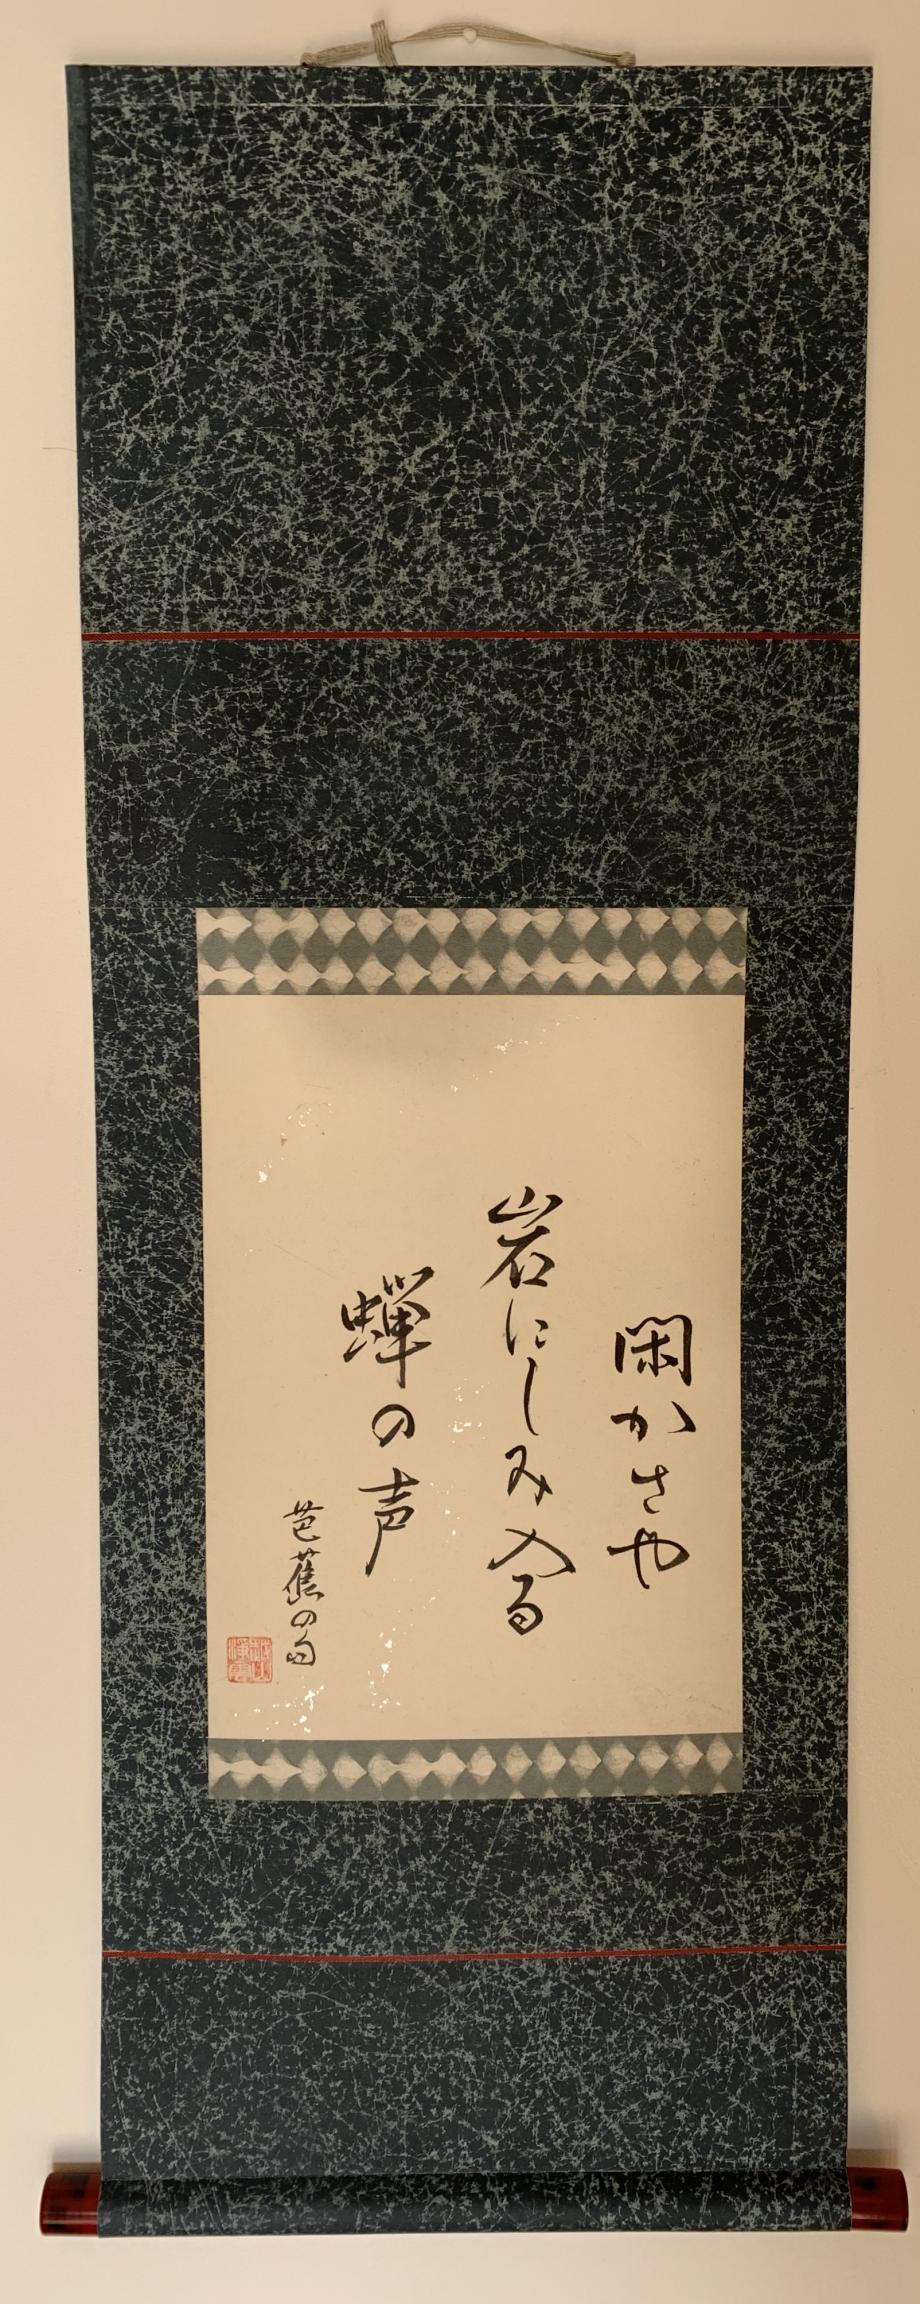 閑かさや
岩にしみ入る
蝉の声
芭蕉の句